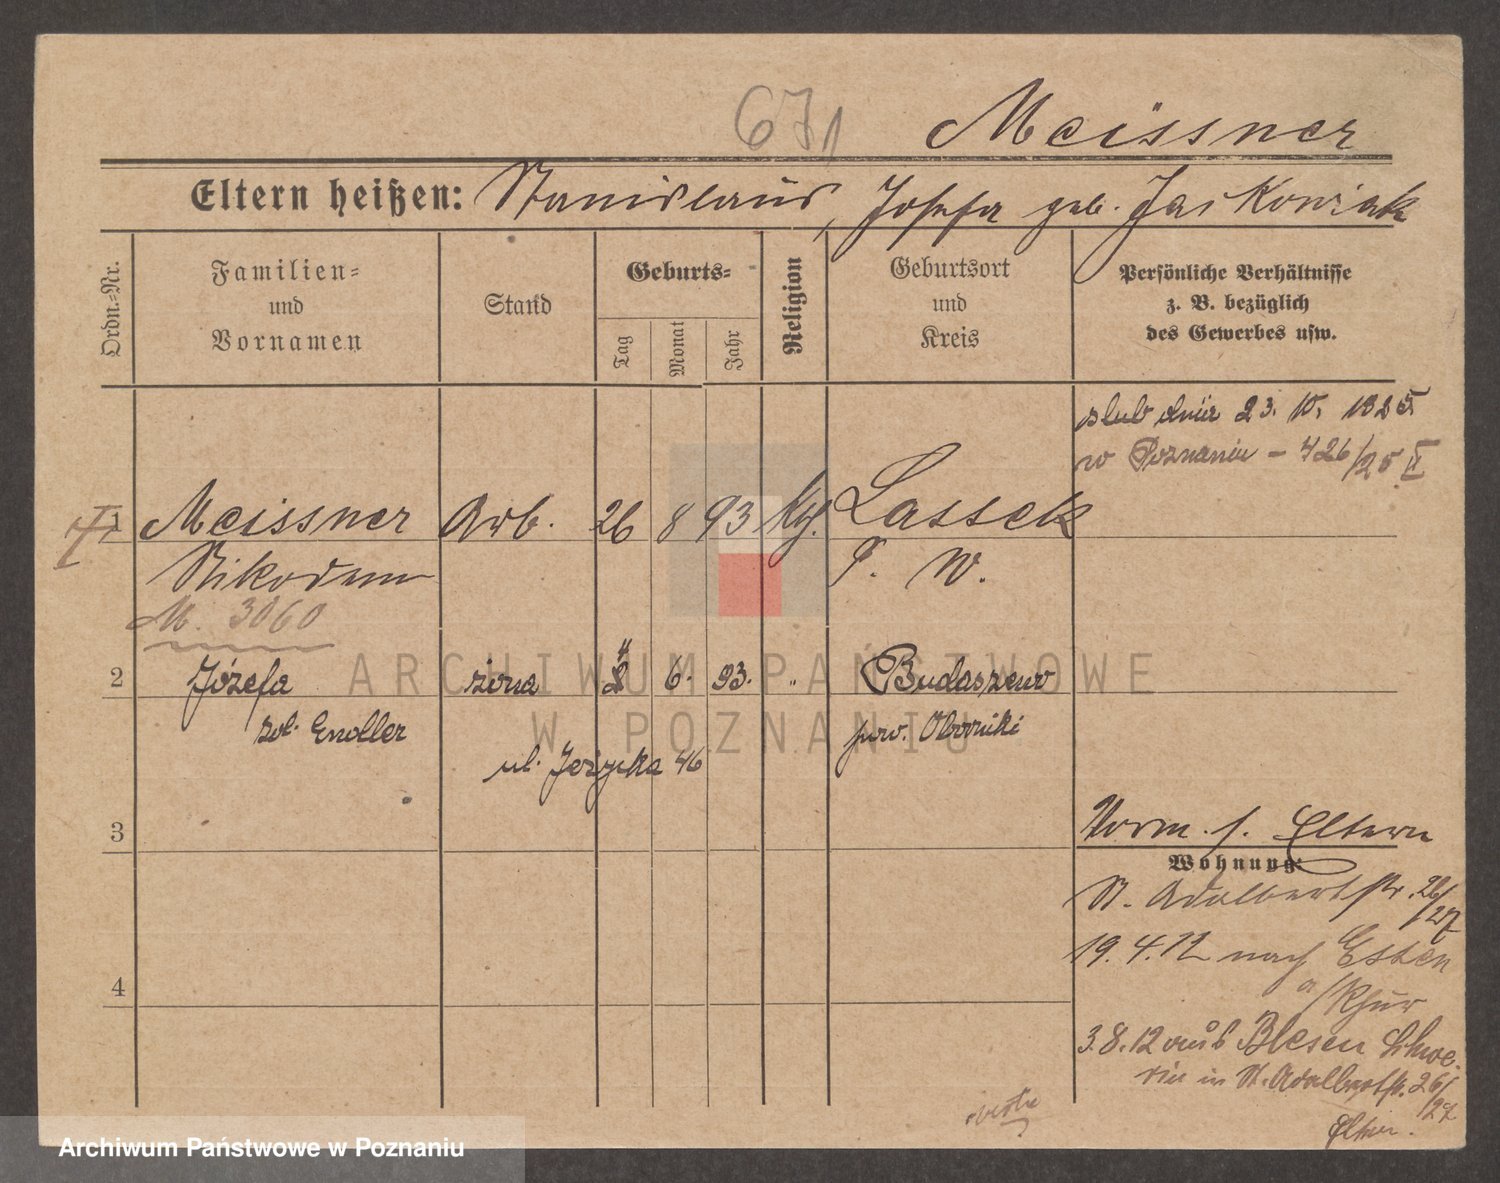 671 Meissner
Eltern heißen: Stanislaus, Josefa geb. Jaskowiak
Ordn.-Nr.
Familien-
und
Vornamen
Stand
Geburts-
Tag
Monat
Jahr
Religion
Geburtsort
und
Kreis
Persönliche Verhältnisse
z. B. bezüglich
des Gewerbes usw.
ślub dnia 23. 10. 1925
w Poznaniu - 426/25 II
1 Meissner Arb. 26 8 93 Lassek
Nikodem P. W.
M. 3060
2 Józefa żona 4 6. 93. " Budaszewo
pow. Oborniki
ul. Jeżycka 46
3
Vorm. s. Eltern
Wohnung:
St. Adalbertstr. 26/27
19. 4. 12 nach Essen
a/Rhur
4
3. 8. 12 aus Blesen Schwe-
rin in St. Adalbertstr. 26/27
Eltern.
ARCHIWUM PAŃSTWOWE
W POZNANIU
Archiwum Państwowe w Poznaniu